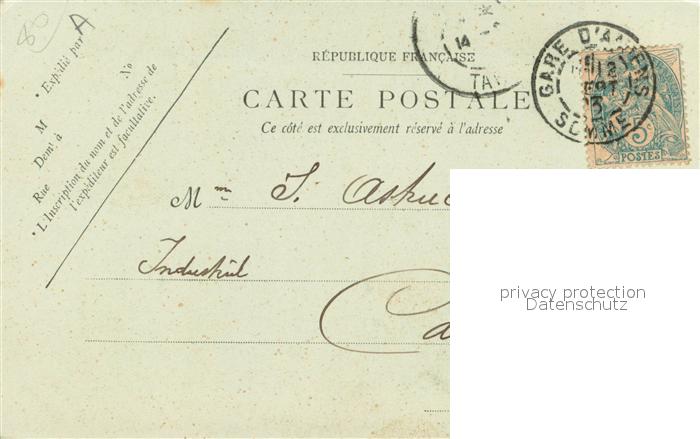 80
A
* Expédié par
No
M
Demt à
Rue
* L'Inscription du nom et de l'adresse de
l'expéditeur est facultative.
RÉPUBLIQUE FRANÇAISE
CARTE POSTALE
Ce côté est exclusivement réservé à l'adresse
14
TAX
GARE D'AMIENS
12
SEPT
03
SOMME
5c
POSTES
Mme J. Askue
Industriel
Ca
privacy protection
Datenschutz